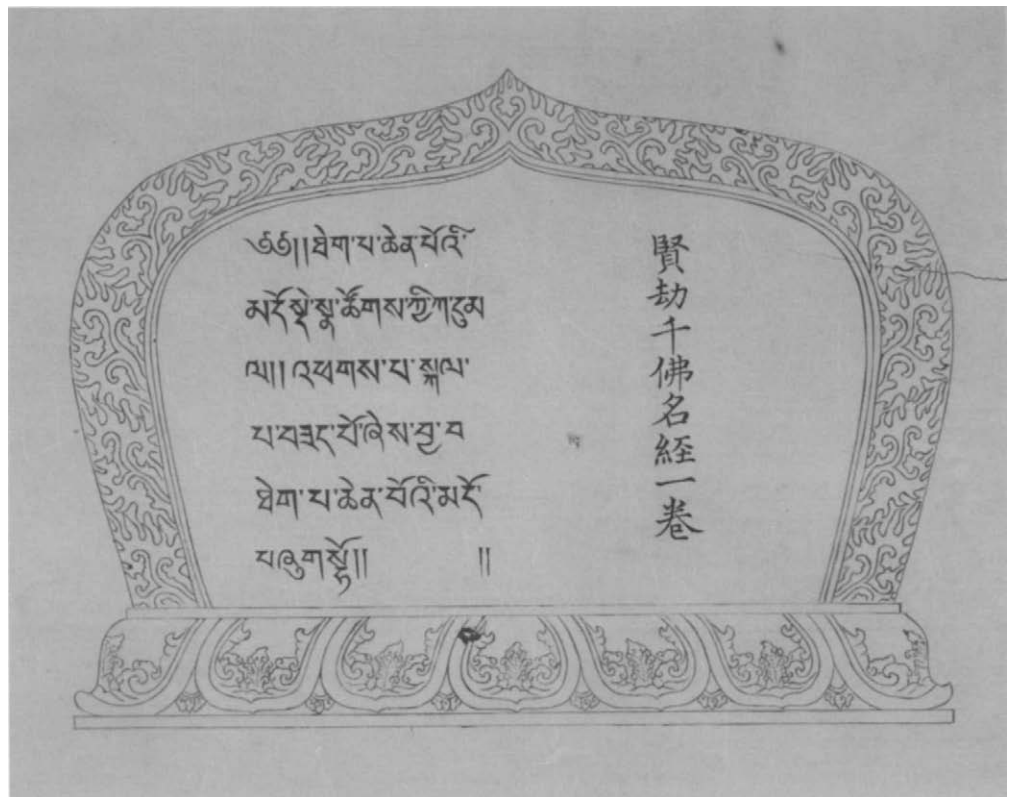 ༄༅།།ཐེག་པ་ཆེན་པོའི་
མདོ་སྡེ་སྣ་ཚོགས་ཀྱི་ཀདུམ
ལ།།འཕགས་པ་སྐལ་
པ་བཟང་པོ་ཞེས་བྱ་བ
ཐེག་པ་ཆེན་པོའི་མདོ་
བཞུགས་སྷོ།། །།
賢劫千佛名經一卷